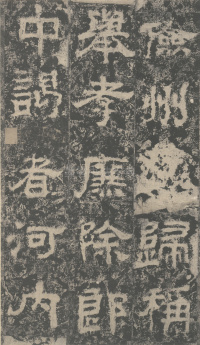 儉州歸稱
舉孝廉除郎
中謁者河內